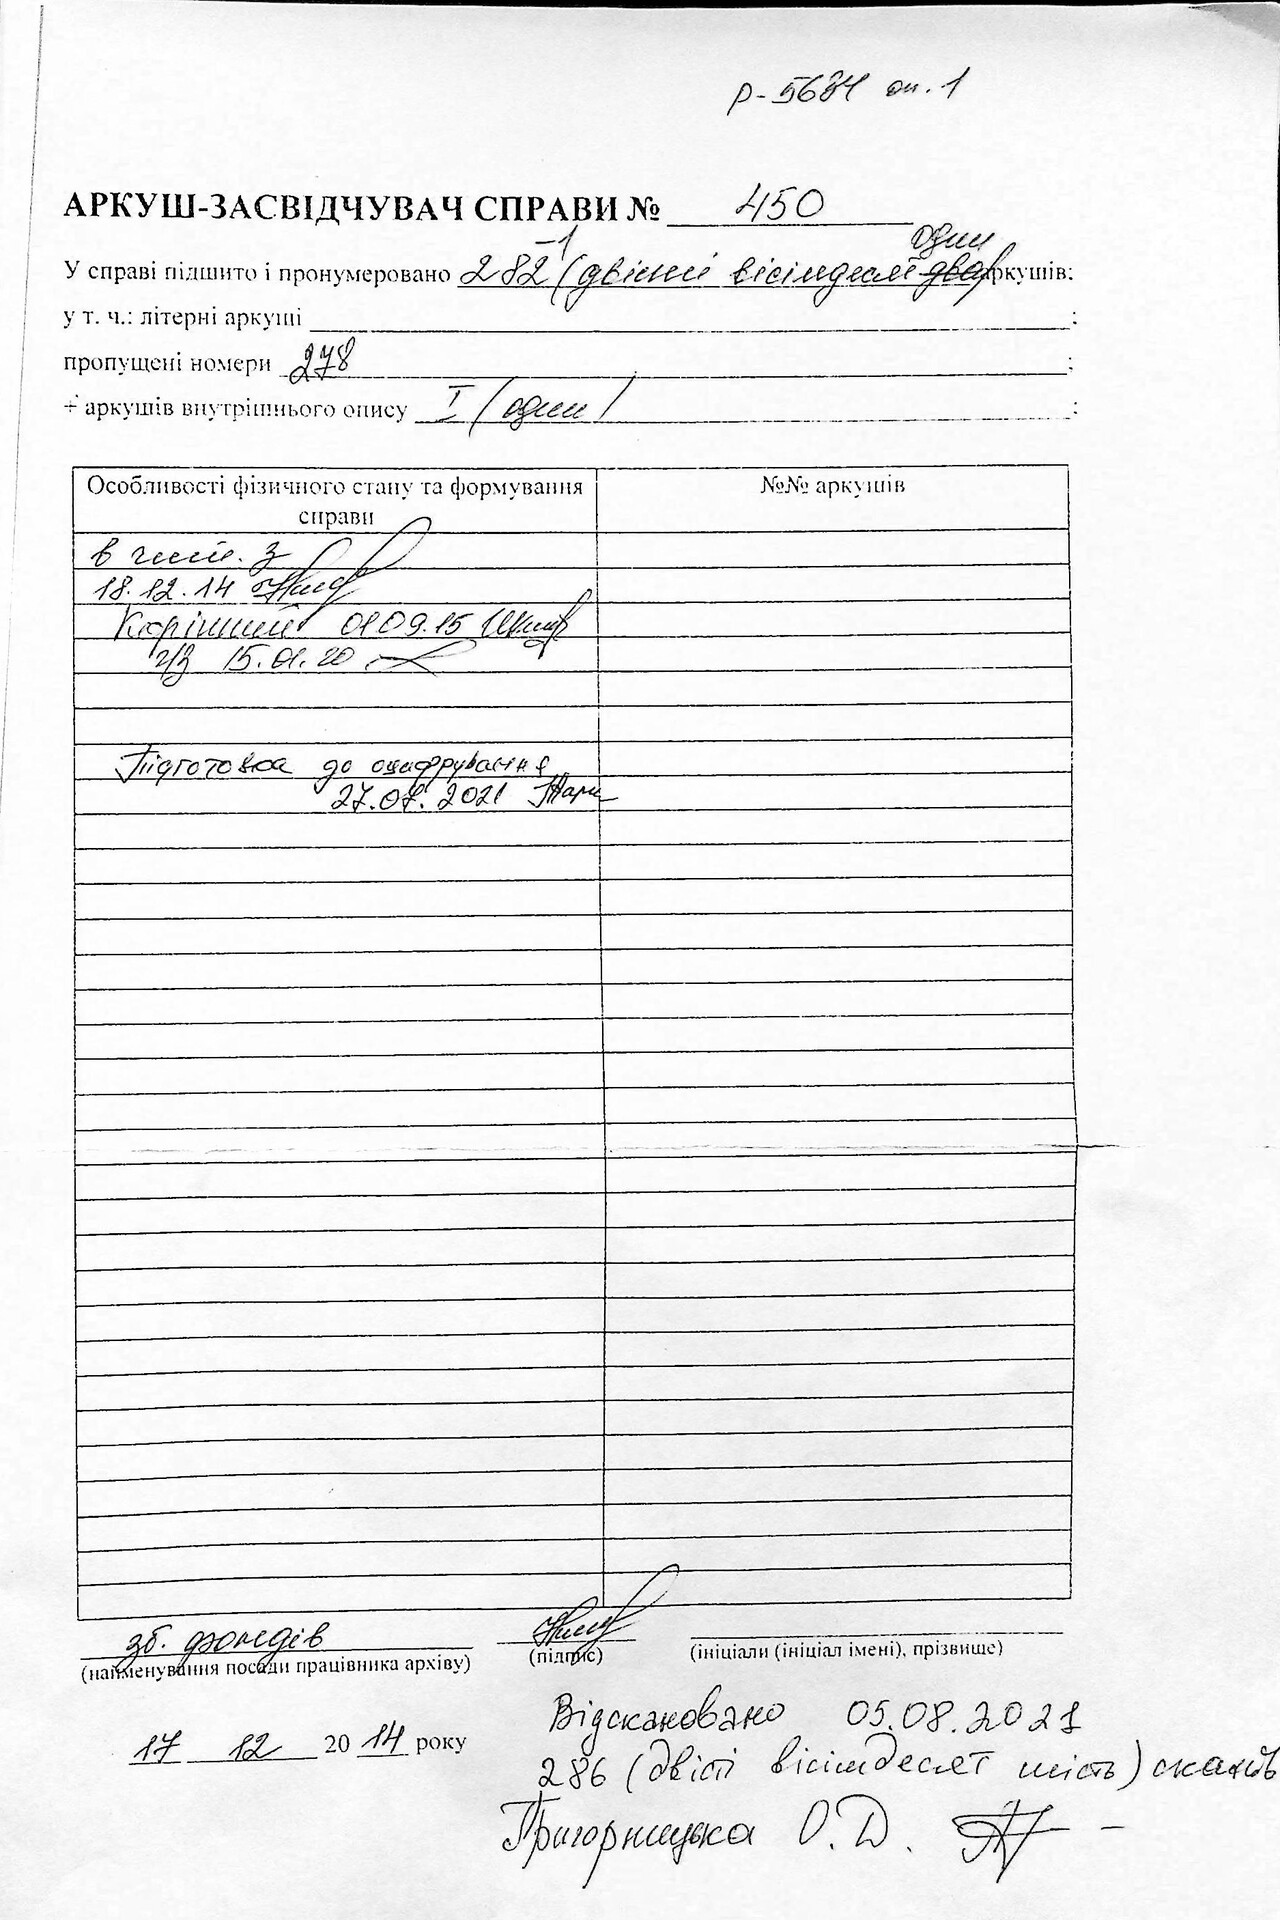 Р-5684 оп. 1
АРКУШ-ЗАСВІДЧУВАЧ СПРАВИ № 450
У справі підшито і пронумеровано 282 -1 (двісті вісімдесят два один аркушів;
у т. ч.: літерні аркуші ;
пропущені номери 278 ;
+ аркушів внутрішнього опису I (один) ;
Особливості фізичного стану та формування справи
№№ аркушів
в чит. з
18.12.14
01.09.15
ч/з 15.01.20
Підготовка до оцифрування
27.07.2021
зб. фондів
(найменування посади працівника архіву)
(підпис)
(ініціали (ініціал імені), прізвище)
17 12 20 14 року
Відскановано 05.08.2021
286 (двісті вісімдесят шість) сканів
Пригорницька О. Д.